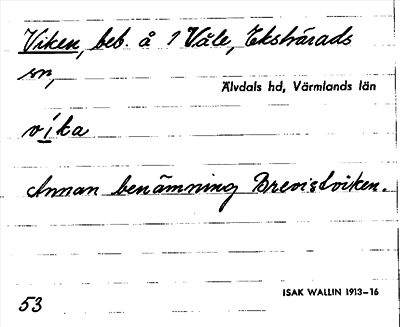 Viken, beb. å 1 Våle, Ekshärads
sn,
Älvdals hd, Värmlands län
víka
Annan benämning Brevistviken.
ISAK WALLIN 1913–16
53